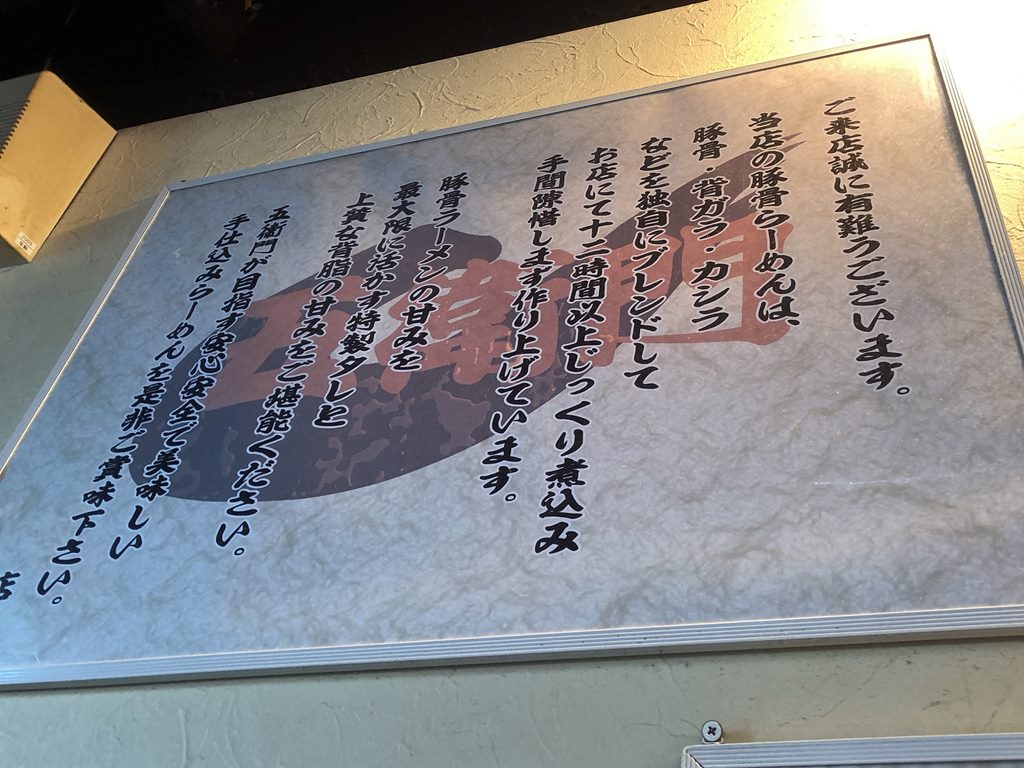 ご来店誠に有難うございます。
当店の豚骨らーめんは、
豚骨・背ガラ・カシラ
などを独自にブレンドして
お店にて十二時間以上じっくり煮込み
手間隙惜します作り上げています。
豚骨ラーメンの甘みを
最大限に活かす特製タレと
上質な背脂の甘みをご堪能ください。
五衛門が目指す安心安全で美味しい
手仕込みらーめんを是非ご賞味下さい。
店
五衛門